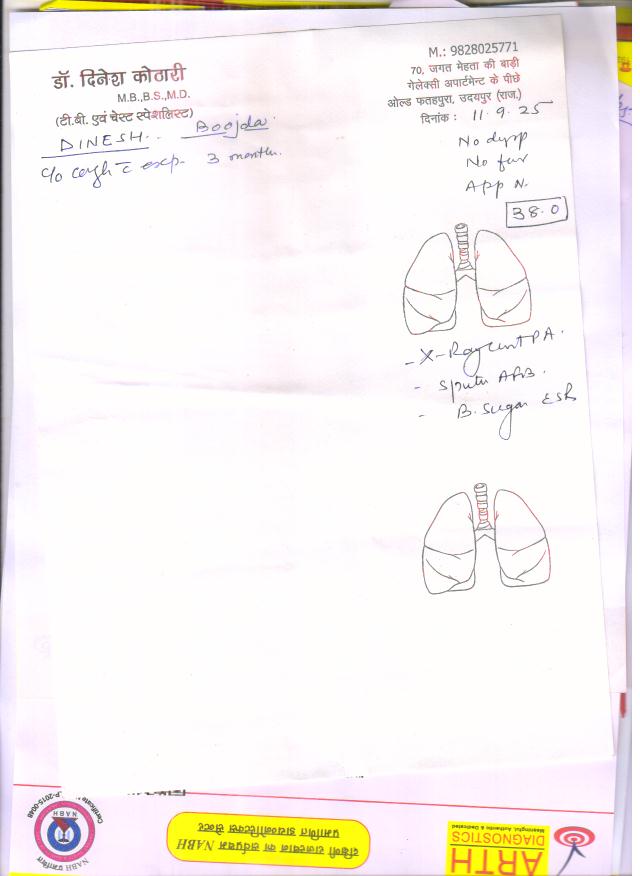 डॉ. दिनेश कोठारी
M.B.,B.S.,M.D.
(टी.बी. एवं चेस्ट स्पेशलिस्ट)
M.: 9828025771
70, जगत मेहता की बाड़ी
गेलेक्सी अपार्टमेन्ट के पीछे
ओल्ड फतहपुरा, उदयपुर (राज.)
दिनांक : 11.9.25
DINESH.. Boojda.
c/o cough c̄ exp. 3 months.
No dysp
No fev
App N.
38.0
- X-Ray chest PA.
- Sputum AFB.
- B. Sugar ESR
दक्षिणी राजस्थान का सर्वप्रथम NABH
प्रमाणित डायग्नोस्टिक्स सेन्टर
ARTH
DIAGNOSTICS
Meaningful, Authentic & Dedicated
NABH